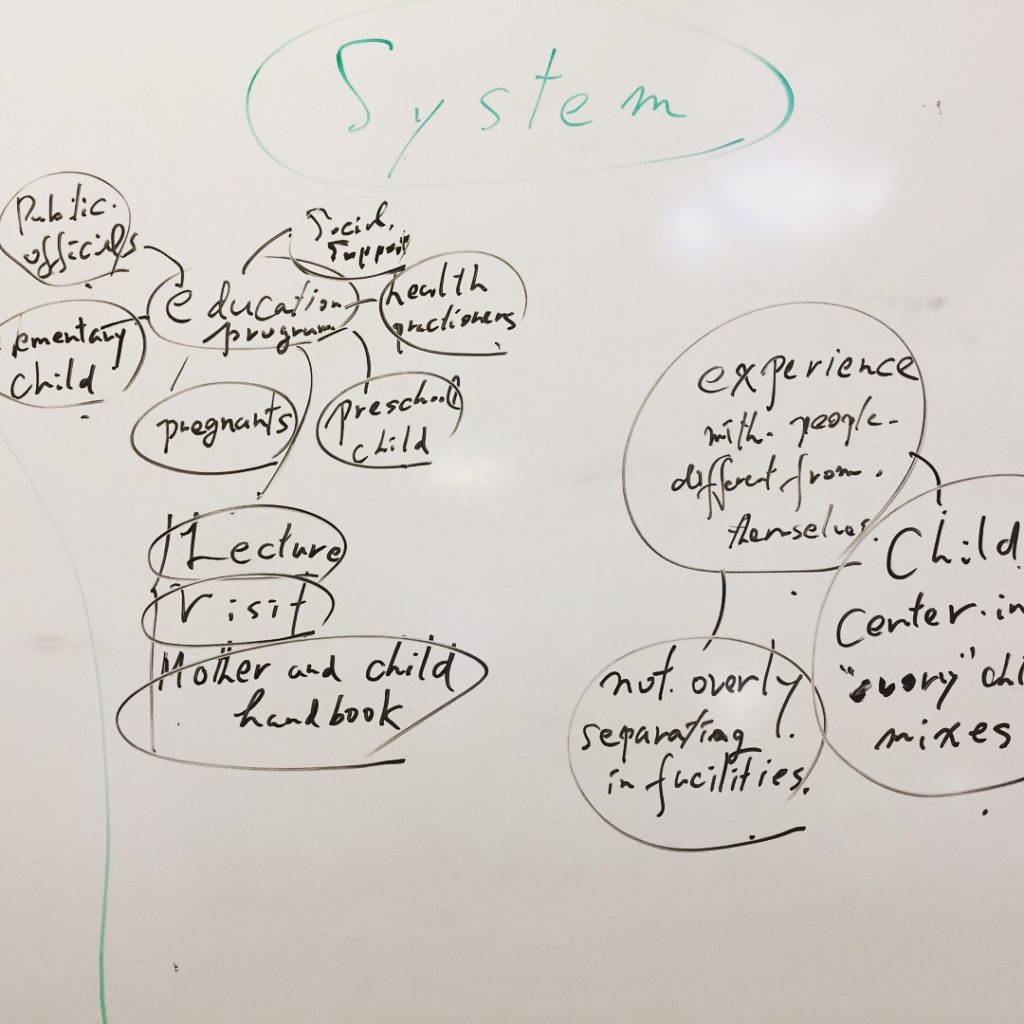 System
Public.
officials
Social.
Support
education
program
health
practioners
ementary
child
pregnants
preschool
child
Lecture
Visit
Mother and child
handbook
experience
with. people.
different from.
themselves.
Child
Center. in
"every" chi
mixes
not. overly
separating
in facilities.